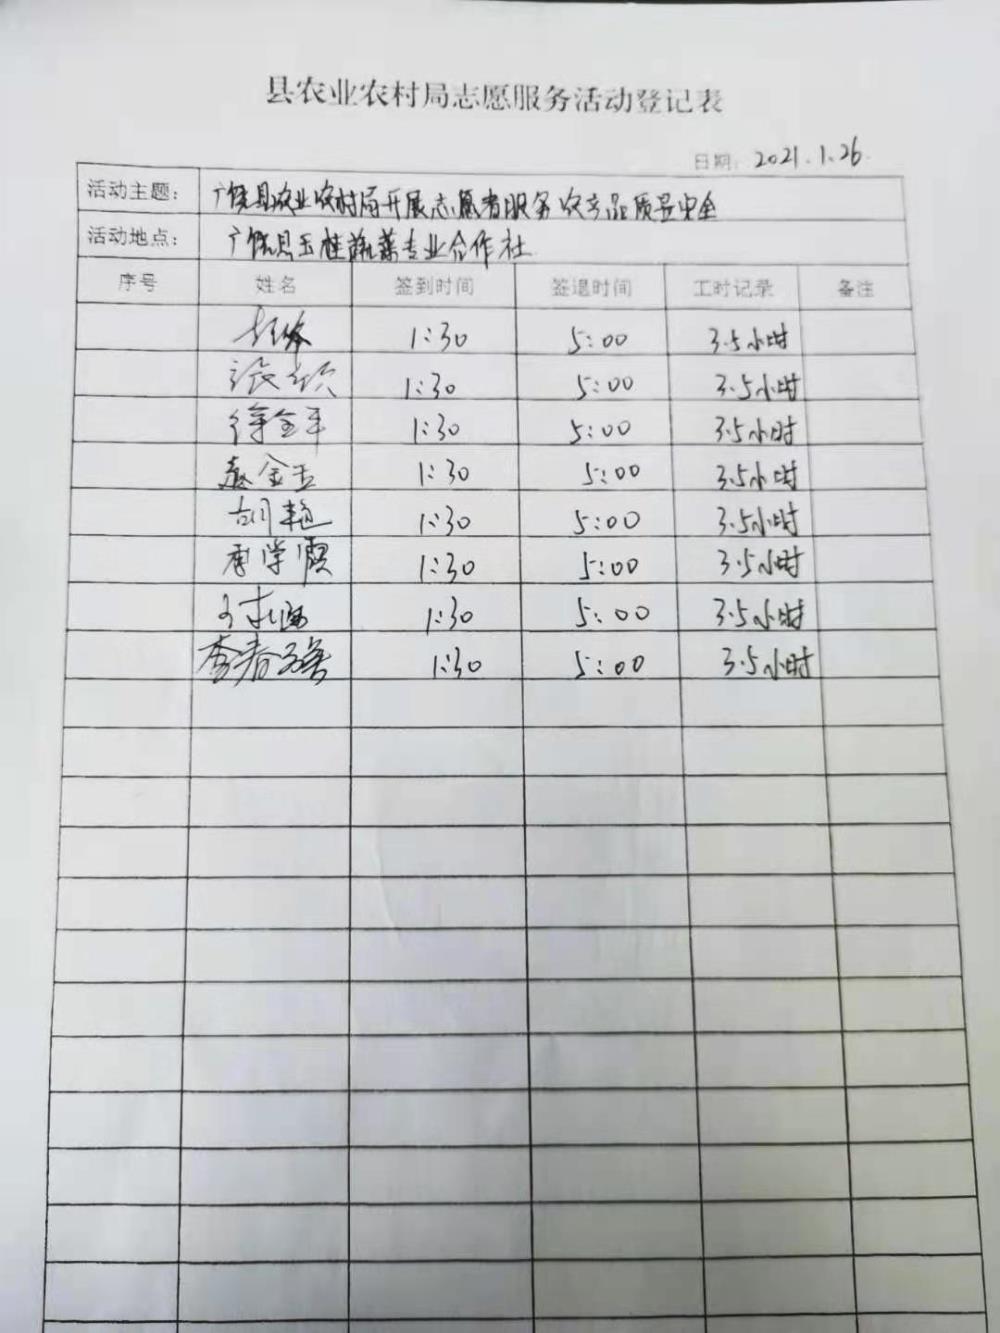 县农业农村局志愿服务活动登记表
日期: 2021.1.26.
活动主题: 广饶县农业农村局开展志愿者服务农产品质量安全
活动地点: 广饶县玉桂蔬菜专业合作社
序号 姓名 签到时间 签退时间 工时记录 备注
1:30 5:00 3.5小时
张 1:30 5:00 3.5小时
徐金平 1:30 5:00 3.5小时
金玉 1:30 5:00 3.5小时
胡艳 1:30 5:00 3.5小时
李学霞 1:30 5:00 3.5小时
1:30 5:00 3.5小时
李春 1:30 5:00 3.5小时